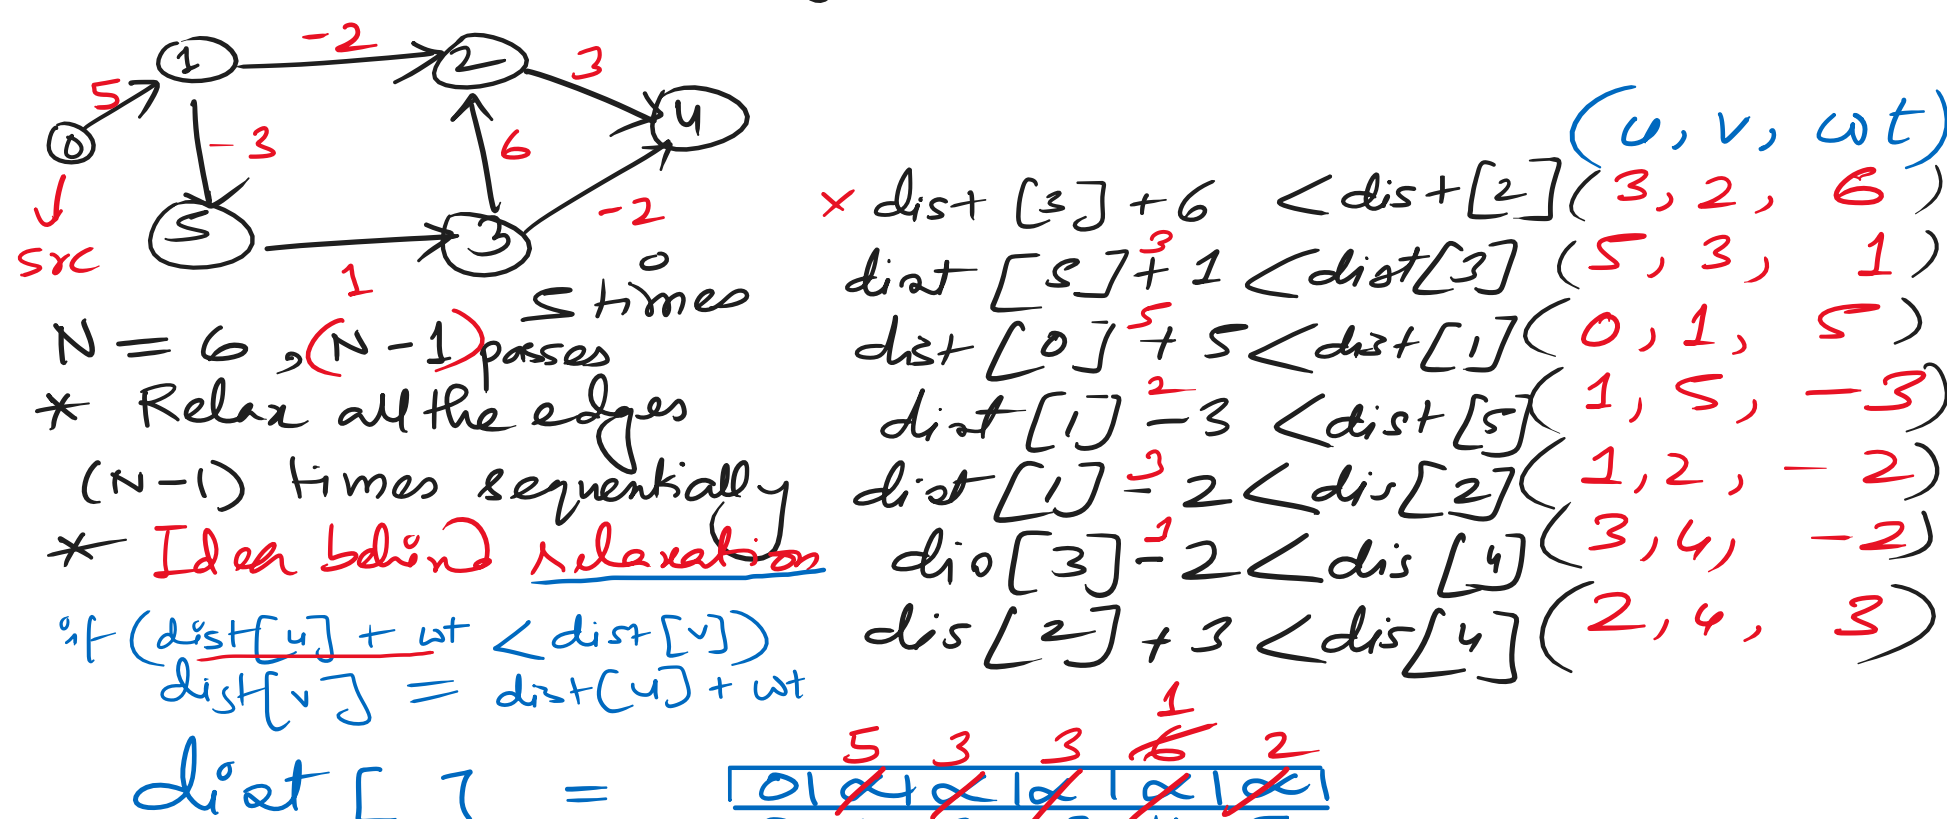 -2
1
2
3
5
4
0
-3
6
-2
5
3
src
1
5 times
N = 6, (N-1) passes
* Relax all the edges
(N-1) times sequentially
* Idea behind relaxation
if (dist[u] + wt < dist[v])
dist[v] = dist[u] + wt
(u, v, wt)
× dist [3] + 6 < dist[2] (3, 2, 6)
3
dist [5] + 1 < dist[3] (5, 3, 1)
5
dist [0] + 5 < dist[1] (0, 1, 5)
2
dist [1] - 3 < dist [5] (1, 5, -3)
3
dist [1] - 2 < dis[2] (1, 2, -2)
1
dis [3] - 2 < dis [4] (3, 4, -2)
dis [2] + 3 < dis[4] (2, 4, 3)
1
5 3 3 6 2
dist [ ] = 0 | ∝ | ∝ | ∝ | ∝ | ∝ |